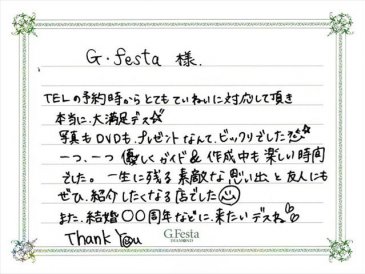 G・festa 様.
TELの予約時からとてもていねいに対応して頂き
本当に、大満足デス☆
写真もDVDも、プレゼントなんて、ビックリでした
一つ、一つ 優しくガイド&作成中も楽しい時間
でした。一生に残る素敵な思い出と友人にも
ぜひ、紹介したくなる店でした
また、結婚〇〇周年などに、来たいデスね
Thank You
G.Festa
DIAMOND